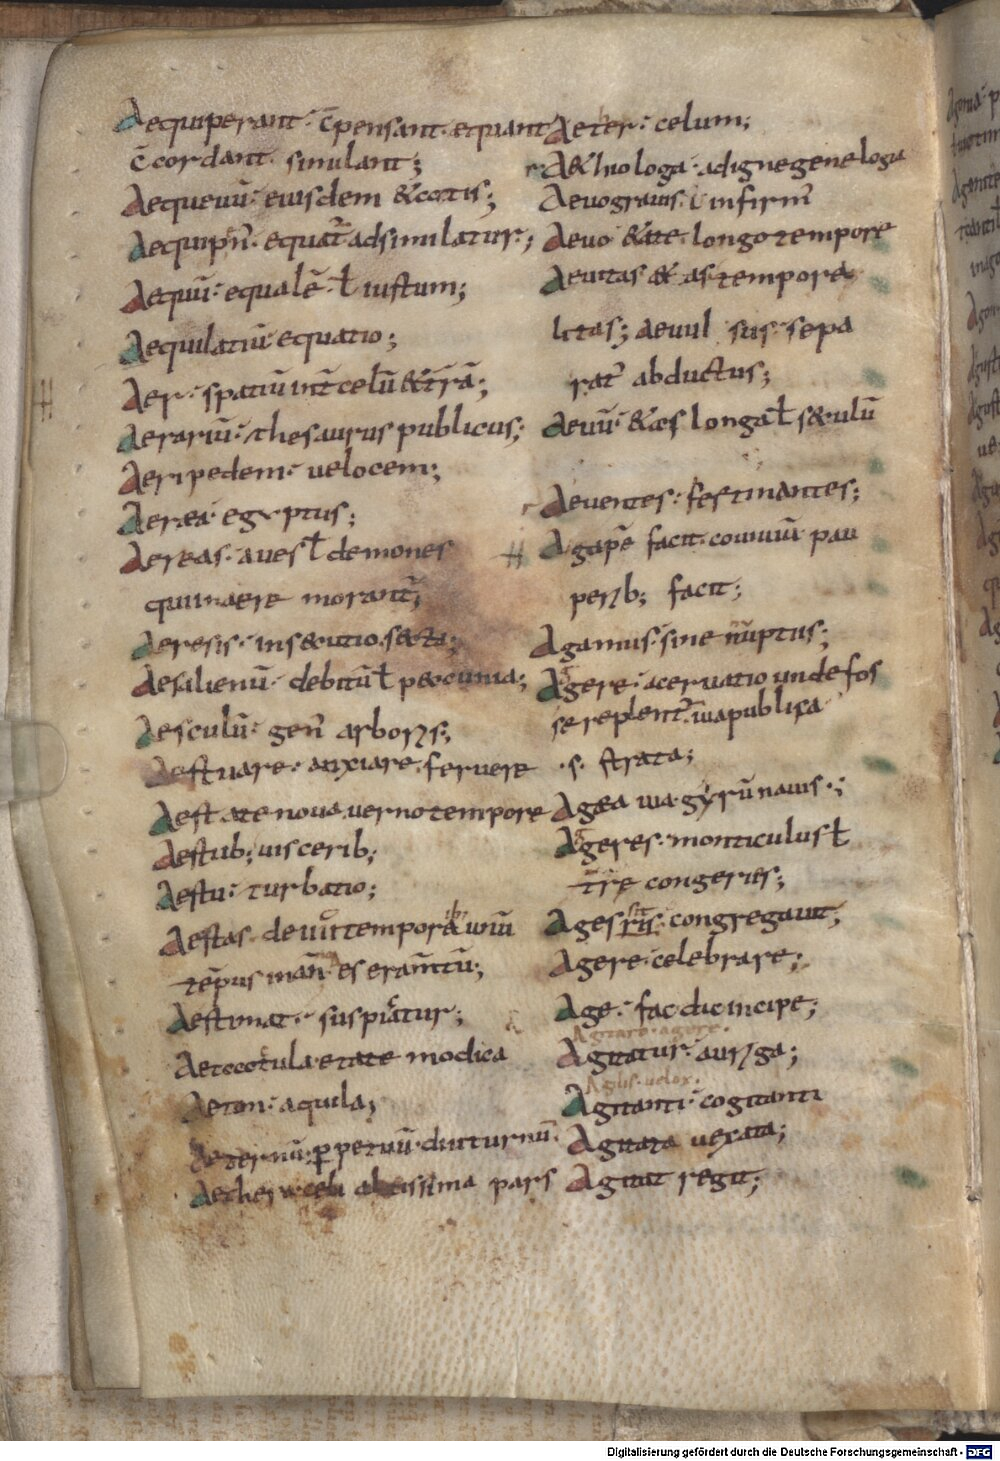 Aequiperant· c̄pensant· equant
c̄cordant· simulant;
Aequeuū· eiusdem &atis;
Aequip̄n̄· equat̄ adsimilatur;
Aequū· equalē· ł iustum;
Aequilatiū equatio;
Aer· spatiū int̄ celū & t̄rā;
Aerariū· thesaurus publicus;
Aeripedem· uelocem;
Aerea· egyptus;
Aereas· aues ł demones
qui in aere morant̄;
Aeresis· ins&utio· s&ta;
Aesalienū· debitū ł peccunia;
Aesculū· gen̄ arboris;
Aestuare· anxiare· feruere
Aestate noua uerno tempore
Aestub; uiscerib;
Aestu· turbatio;
Aestas· de
tēpus
Aestunat· suspiratur;
Aetatula etate modica
Aeton· aquila;
Aeternū· ꝑpetuū· diuturnū·
Aether celi altissima pars
Aeter· celum;
A&hiologa· adigne genelogia
Aeuo grauis· infirm̄
Aeuo &ate longo tempore
Aeuitas &as tempora
litas; aeuul sus· sepa
rat̄ abductus;
Aeuū· &as longa ł s&ulū
Aeuentes· festinantes;
Agapē facit· conuiuiū pau
perib; facit;
Agamus· sine nuptus;
Agere· aceruatio unde fos
se replent̄ uia publica
·s· strata;
Agea uia· gyrū nauis·;
Ageres· monticulus ł
tr̄e congeries;
Ages congregauit;
Agere· celebrare;
Age· fac dic incipe;
Agitare· agere·
Agitatur· auriga;
Agilis· uelox·
Agitanti· cogitanti
Agitata uexata;
Agitat regit;
Digitalisierung gefördert durch die Deutsche Forschungsgemeinschaft - DFG